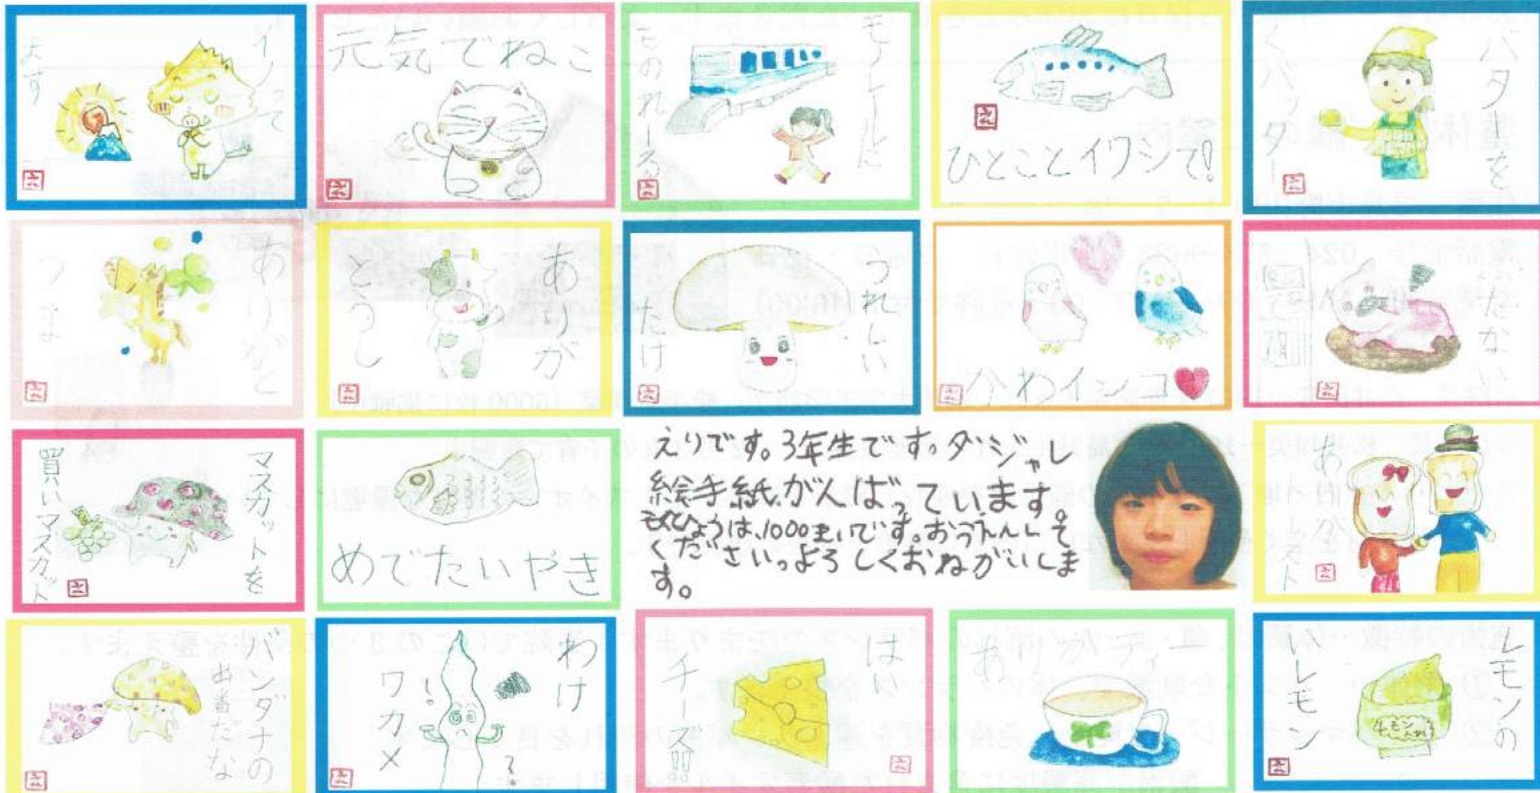 イノって
ます
元気でねこ
モノレールに
ものれーる
ひとことイワシて!
バタを
くバッター
ありがと
つま
ありが
とうし
うれしい
たけ
かわインコ
マスカットを
買いマスカット
めでたいやき
えりです。3年生です。ダジャレ
絵手紙がんばっています。
もくひょうは、1000まいです。おうえんして
ください。よろしくおねがいしま
す。
あリが
トースト
バンダナの
出番だな
わけ
ワカメ
はい
チーズ!!
ありがティー
レモンの
いレモン
レモン